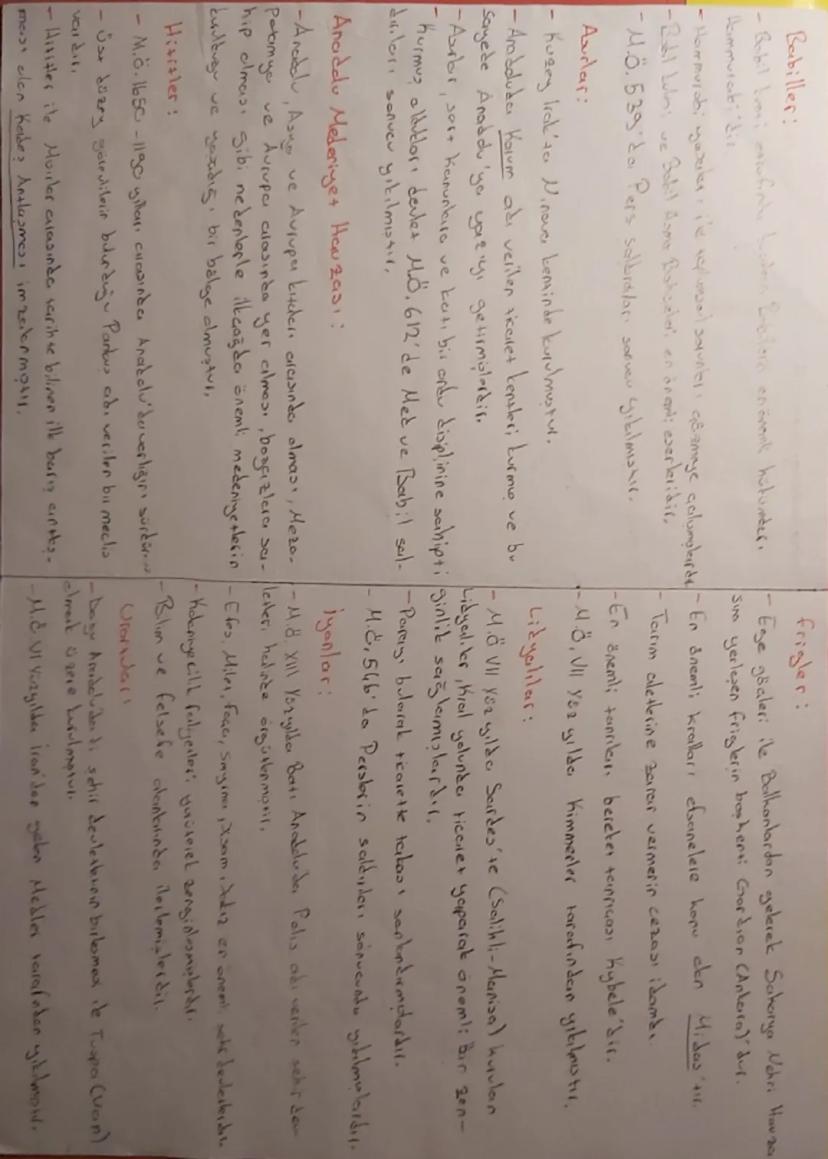 Babiller:
- Babil
Hammurabi'dir.
- Hammurabi yasaları ile toplumsal sorunları çözmeye çalışmışlardır.
- Babil Kulesi ve Babil Asma Bahçeleri en önemli eserleridir.
- M.Ö. 539'da Pers saldırıları sonucu yıkılmıştır.
Asurlar:
- Kuzey Irak'ta Ninova kentinde kurulmuştur.
- Anadoluda Karum adı verilen ticaret kentleri kurmuş ve bu
sayede Anadolu'ya yazıyı getirmişlerdir.
- Asurlar, sert kanunlara ve katı bir ordu disiplinine sahipti
- Kurmuş oldukları devlet M.Ö. 612'de Med ve Babil sal-
dırıları sonucu yıkılmıştır.
Anadolu Medeniyet Havzası:
- Anadolu, Asya ve Avrupa kıtaları arasında olması, Mezo-
potamya ve Avrupa arasında yer alması, boğazlara sa-
hip olması gibi nedenlerle ilkçağda önemli medeniyetlerin
kurulduğu ve yaşadığı bir bölge olmuştur.
Hititler:
- M.Ö. 1650-1190 yılları arasında Anadolu'da varlığını
- Üst düzey görevlilerin bulunduğu Pankuş adı verilen bir meclis
vardır.
- Hititler ile Mısırlılar arasında tarihte bilinen ilk barış antlaş-
ması olan Kadeş Antlaşması imzalanmıştır.
Frigler:
- Ege göçleri ile Balkanlardan gelerek Sakarya Nehri Havza
sına yerleşen friglerin başkenti Gordion (Ankara)'dur.
- En önemli kralları efsanelere konu olan Midas'tır.
- Tarım aletlerine zarar vermenin cezası idamdı.
- En önemli tanrıları bereket tanrıçası Kybele'dir.
- M.Ö. VII yüzyılda Kimmerler tarafından yıkılmıştır.
Lidyalılar:
- M.Ö VII yüzyılda Sardes'te (Salihli-Manisa) kurulan
Lidyalılar, Kral yolunda ticaret yaparak önemli bir zen-
ginlik sağlamışlardır.
- Parayı bularak ticarette takası sonlandırmışlardır.
- M.Ö. 546'da Perslerin saldırıları sonucunda yıkılmışlardır.
İyonlar:
- M.Ö XII yüzyılda Batı Anadoluda Polis adı verilen şehir dev-
letleri halinde örgütlenmiştir.
- Efes, Milet, Foça, İzmir en önemli şehir devletleridir.
- Kolonicilik faliyetleri yürüterek zenginleşmişlerdir.
- Bilim ve felsefe alanlarında ilerlemişlerdir.
Urartular:
- Doğu Anadolu'daki şehir devletlerinin birleşmesi ile Tuşpa (Van)
olmak üzere kurulmuştur.
- M.Ö VI yüzyılda İran'dan gelen Medler tarafından yıkılmıştır.